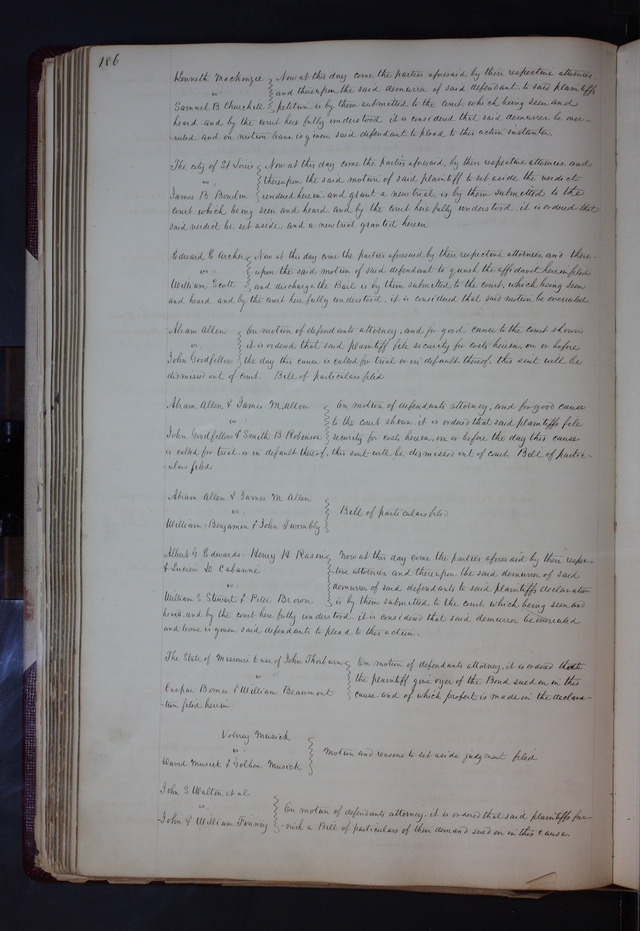 186
Kenneth Mackenzie } Now at this day come the parties aforesaid by their respective attornies,
vs } and thereupon the said demurrer of said defendant to said plaintiffs
Samuel B Churchill } petition is by them submitted to the court which being seen and
heard and by the court here fully understood it is considered that said demurrer be over-
-ruled and on motion leave is given said defendant to plead to this action instanter.
The city of St Louis } Now at this day come the parties aforesaid, by their respective attornies, and
vs } thereupon the said motion of said plaintiff to set aside the verdict
James B Bowlin } rendered herein and grant a new trial is by them submitted to the
court which being seen and heard and by the court here fully understood, it is ordered that
said verdict be set aside and a new trial granted herein
Edward E Archer } Now at this day come the parties aforesaid by their respective attornies and there-
vs } upon the said motion of said defendant to quash the affidavit herein filed
William Scott } and discharge the Bail is by them submitted to the court, which being seen
and heard, and by the court here fully understood, it is considered that said motion be overruled
Abram Allen } On motion of defendants attorney, and for good cause to the court shown
vs } it is ordered that said plaintiff file security for costs herein, on or before
John Goodfellow } the day this cause is called for trial or in default thereof, this suit will be
dismissed out of court. Bill of particulars filed
Abram Allen & James M. Allen } On motion of defendants attorney, and for good cause
vs } to the court shown it is ordered that said plaintiffs file
John Goodfellow & Smith B Robinson } security for costs herein, on or before the day this cause
is called for trial, or in default thereof, this suit will be dismissed out of court. Bill of partic-
-ulars filed
Abram Allen & James M Allen
vs } Bill of particulars filed
William, Benjamin & John Twombly
Albert G Edwards Henry H Rason } Now at this day come the parties aforesaid by their respec-
& Lucien D Cabanne } -tive attornies and thereupon the said demurrer of said
vs } demurrer of said defendants to said plaintiffs declaration
William S Stewart & Peter Brown } is by them submitted to the court which being seen and
heard, and by the court here fully understood, it is considered that said demurrer be overruled
and leave is given said defendants to plead to this action.
The State of Missouri to use of John Thorburn } On motion of defendants attorney, it is ordered that
vs } the plaintiff give oyer of the Bond sued on in this
Caspar Bomer & William Beaumont } cause and of which profert is made in the declara-
-tion filed herein
Volney Musick
vs } Motion and reasons to set aside judgment filed
David Musick & Musick
John S Walton et al
vs } On motion of defendants attorney, it is ordered that said plaintiffs fur-
John & William Finney } -nish a Bill of particulars of their demand sued on in this cause.